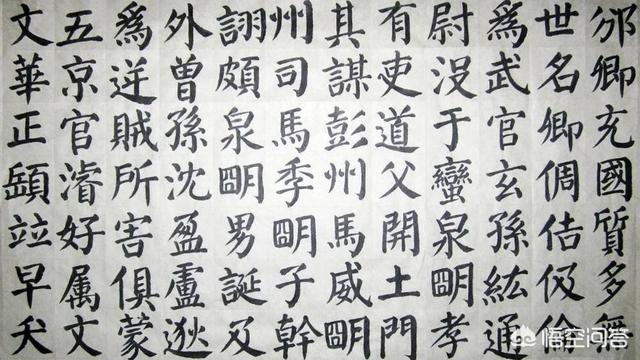 邠卿充國質多
世名卿倜佶伋倫
爲武官玄孫紘通
尉没于蠻泉明孝
有吏道父開土門
其謀彭州馬威明
州司馬季明子幹
詡頗泉明男誕及
外曾孫沈盈盧逖
爲逆賊所害俱蒙
五京官濬好属文
文華正頵竝早夭
悟空问答